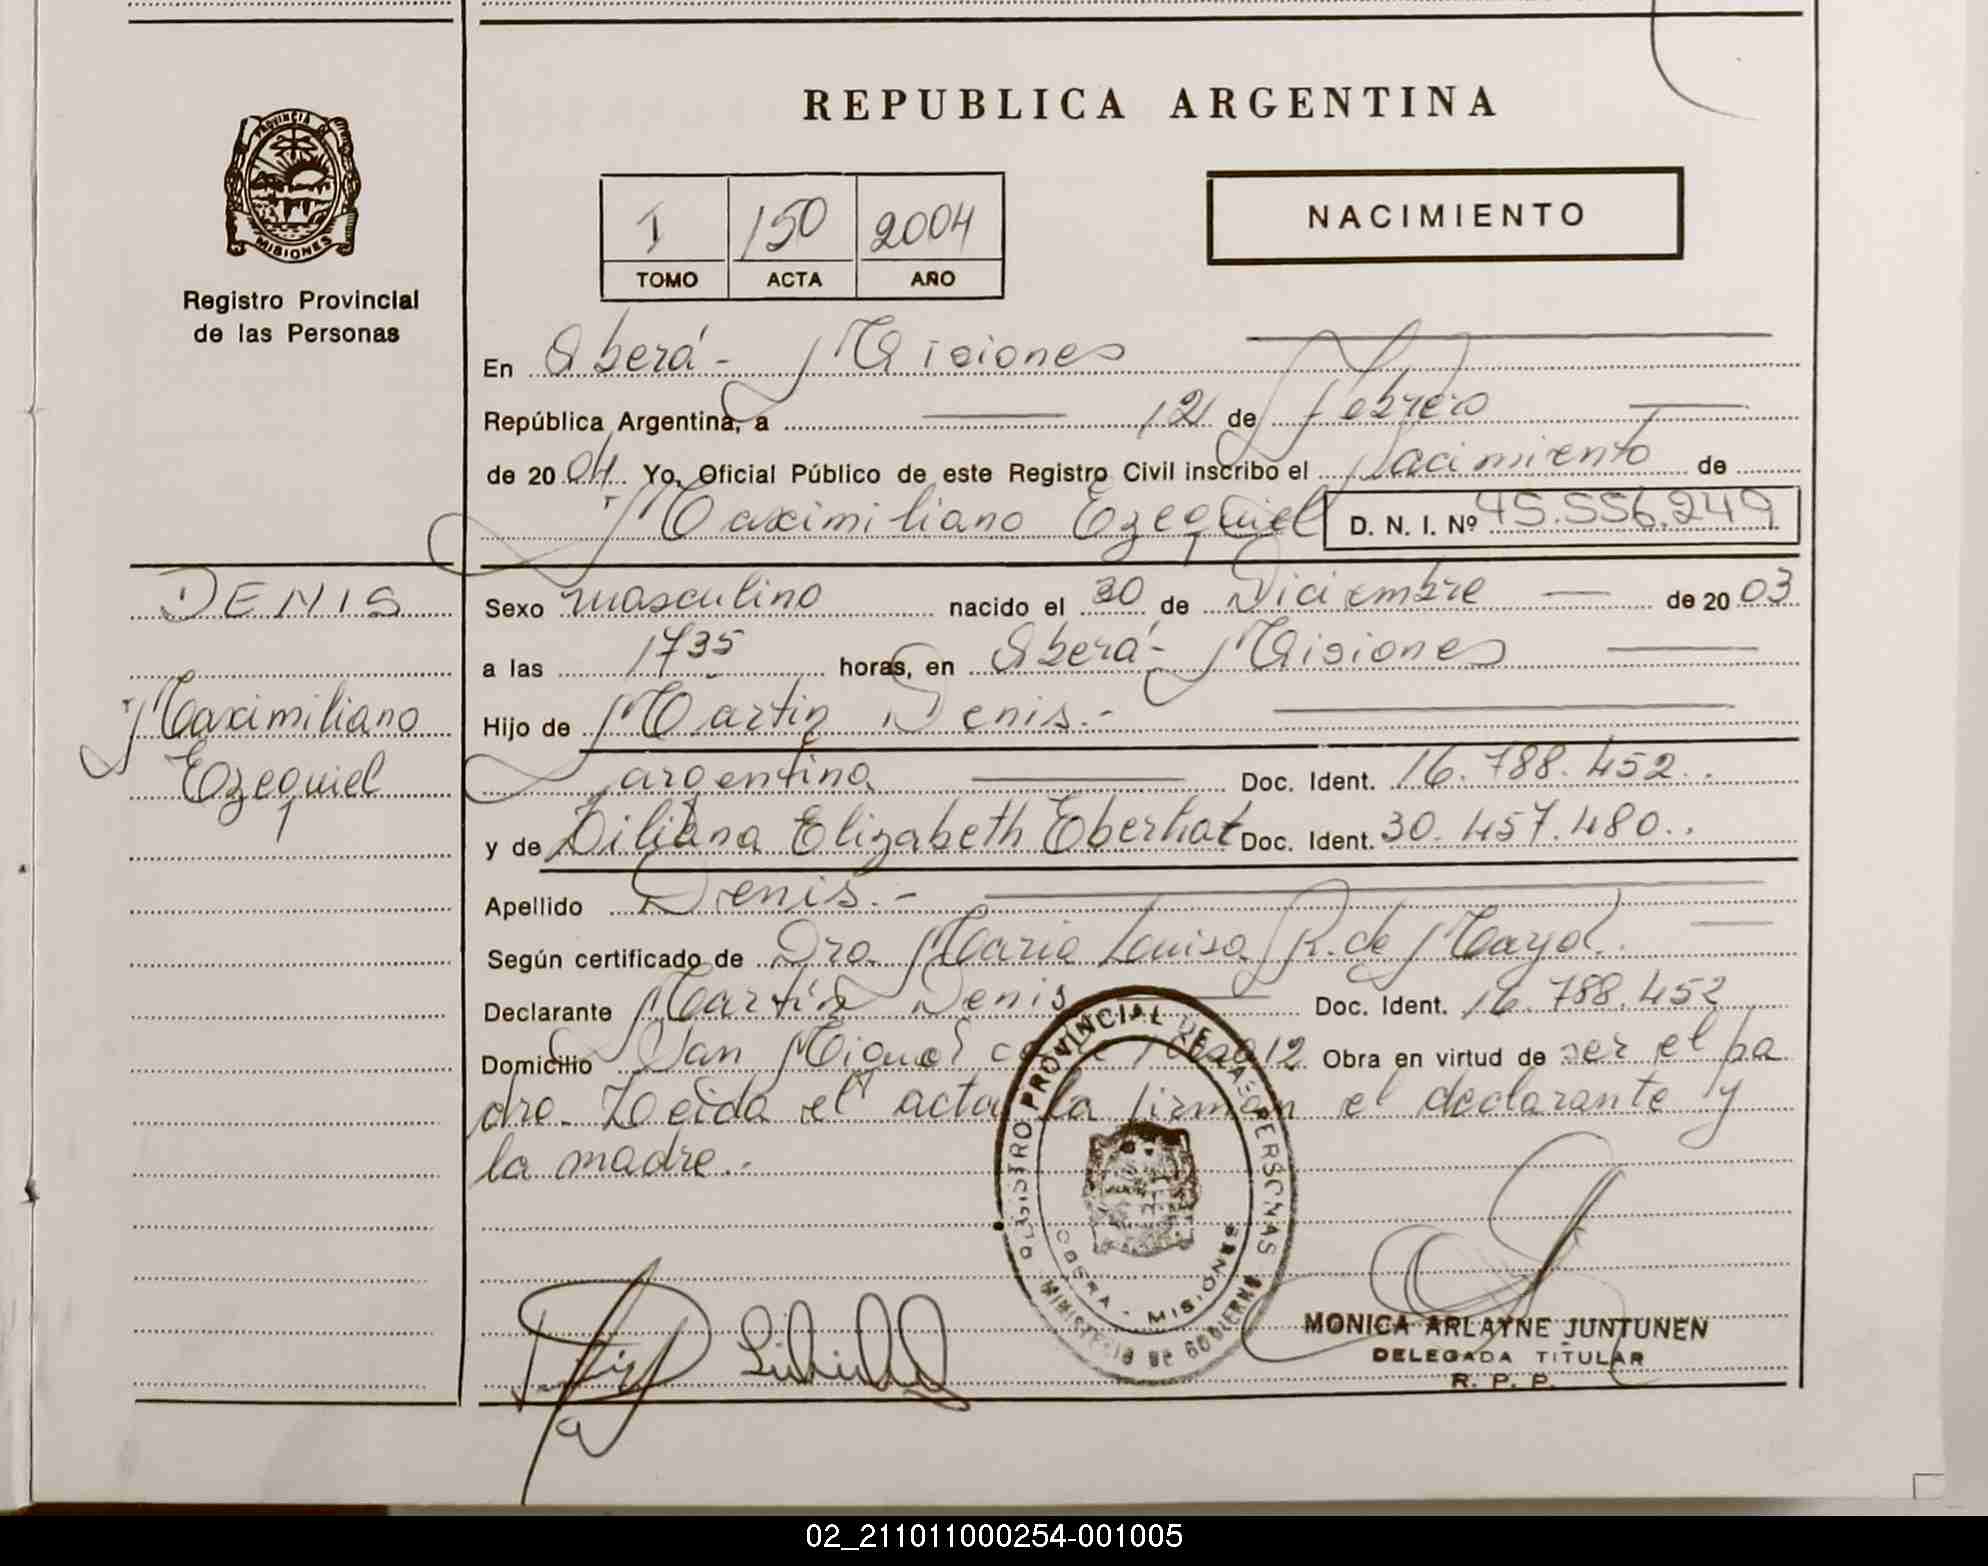 REPUBLICA ARGENTINA
PROVINCIA DE
MISIONES
Registro Provincial
de las Personas
I 150 2004
TOMO ACTA AÑO
NACIMIENTO
En Oberá - Misiones
República Argentina, a 12 de Febrero
de 2004. Yo, Oficial Público de este Registro Civil inscribo el Nacimiento de
Maximiliano Ezequiel D. N. I. Nº 45.556.249
DENIS
Maximiliano
Ezequiel
Sexo masculino nacido el 30 de Diciembre de 2003
a las 1735 horas, en Oberá - Misiones
Hijo de Martin Denis.-
argentino Doc. Ident. 16.788.452..
y de Liliana Elizabeth Eberhat Doc. Ident. 30.457.480..
Apellido Denis.-
Según certificado de Dra. Maria Luisa R. de Mayol.
Declarante Martín Denis Doc. Ident. 16.788.452
Domicilio San Miguel 12 Obra en virtud de ser el pa
dre. Leida el acta la firman el declarante y
la madre.-
REGISTRO PROVINCIAL DE LAS PERSONAS
MINISTERIO DE GOBIERNO
OBERA - MISIONES
MONICA ARLAYNE JUNTUNEN
DELEGADA TITULAR
R. P. P.
02_211011000254-001005